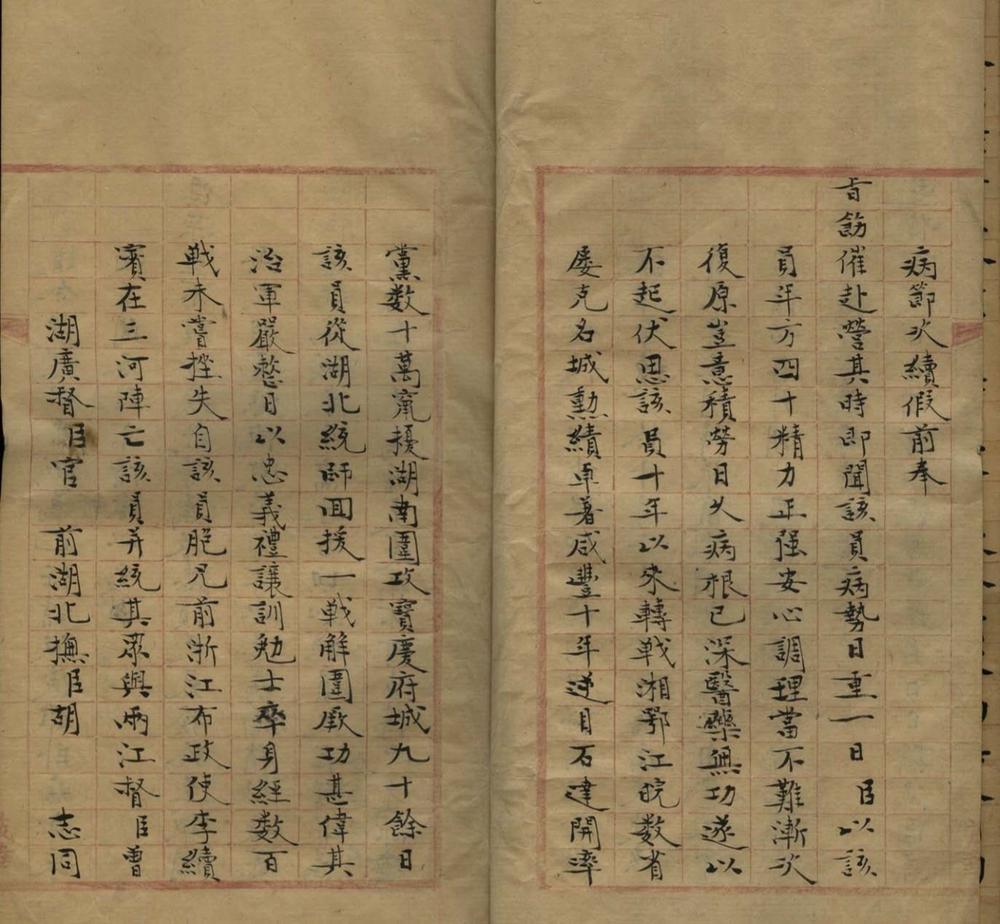 病節次續假前奉
旨飭催赴營其時即聞該員病勢日重一日 臣以該
員年方四十精力正强安心調理當不難漸次
復原豈意積勞日久病根已深醫藥無功遂以
不起伏思該員十年以來轉戰湘鄂江皖数省
屡克名城勲績卓著咸豐十年逆目石達開率
黨数十萬竄擾湖南圍攻寶慶府城九十餘日
該員從湖北統師回援一戰解圍厥功甚偉其
治軍嚴整日以忠義禮讓訓勉士卒身經数百
戰未嘗挫失自該員胞兄前浙江布政使李續
賓在三河陣亡該員并統其眾與兩江督臣曾
湖廣督臣官 前湖北撫臣胡 志同